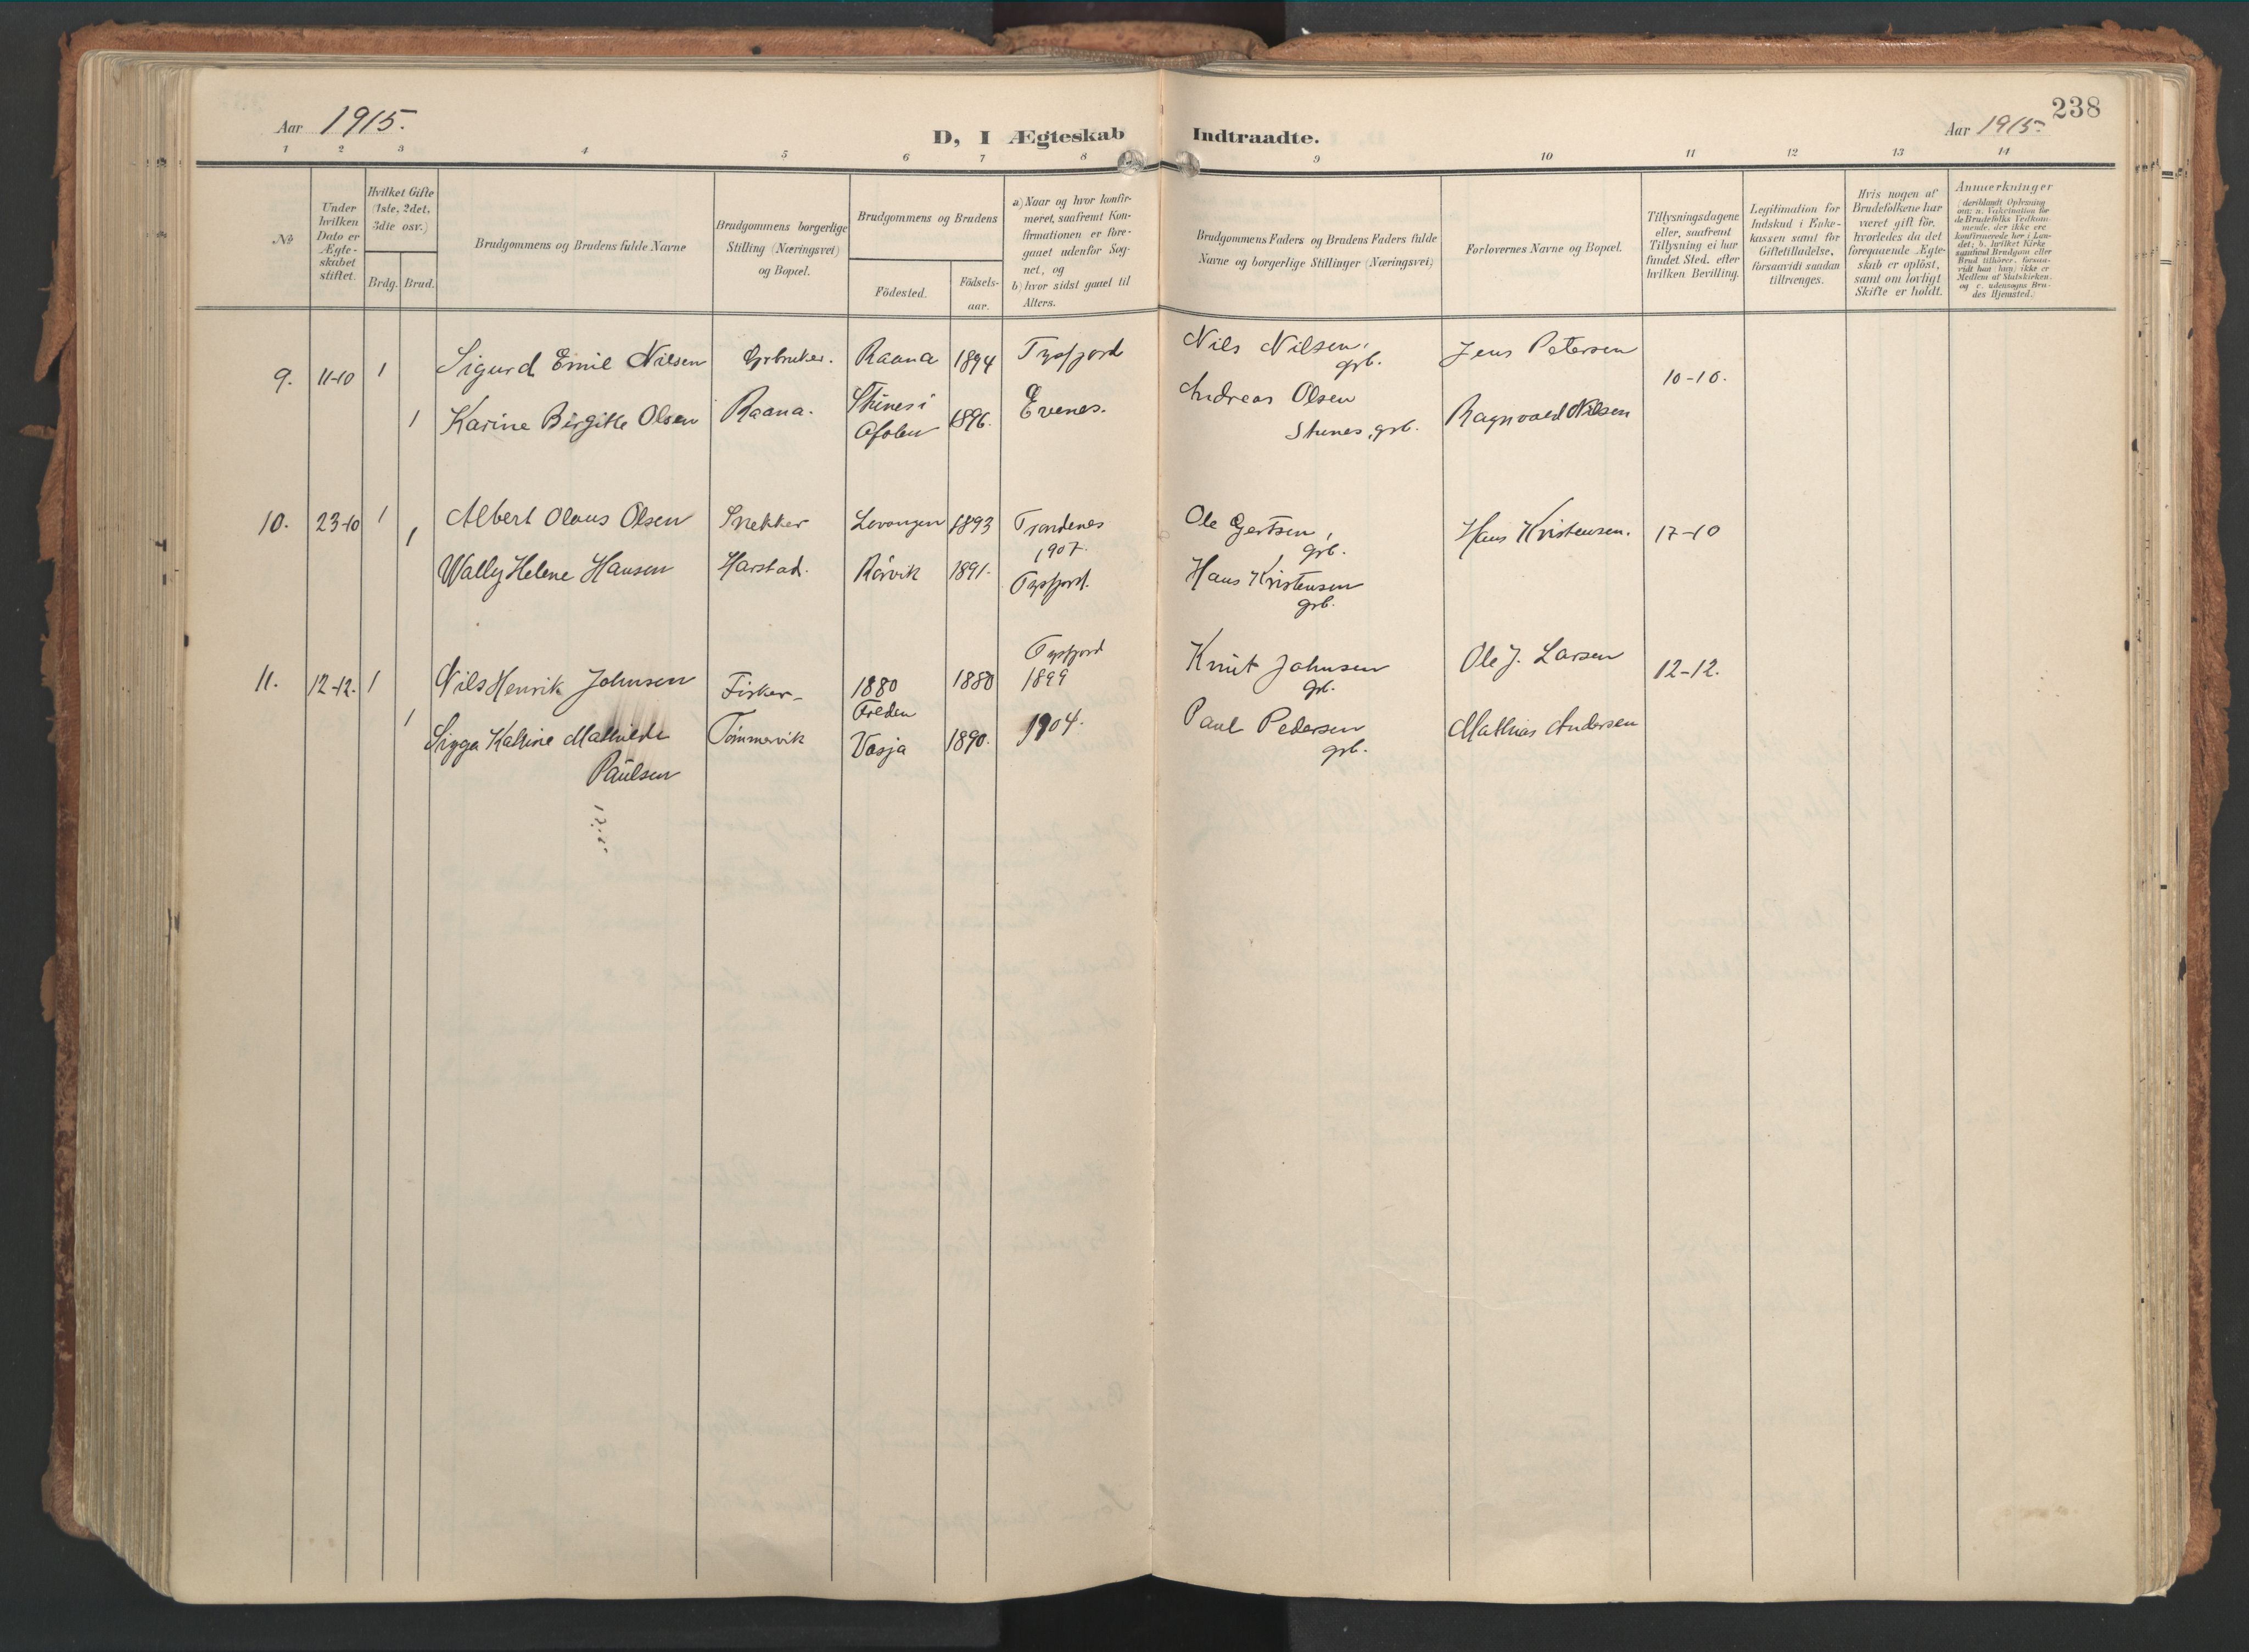 238
Aar 1915.
D, I Ægteskab Indtraadte.
Aar 1915
1 2 3 4 5 6 7 8 9 10 11 12 13 14
No
Under hvilken Dato er Ægte-skabet stiftet.
Hvilket Gifte (1ste, 2det, 3die osv.)
Brdg. Brud.
Brudgommens og Brudens fulde Navne
Brudgommens borgerlige Stilling (Næringsvei) og Bopæl.
Brudgommens og Brudens
Födested.
Födsels-aar.
a) Naar og hvor konfir-meret, saafremt Kon-firmationen er fore-gaaet udenfor Sog-net, og
b) hvor sidst gaaet til Alters.
Brudgommens Faders og Brudens Faders fulde Navne og borgerlige Stillinger (Næringsvei)
Forlovernes Navne og Bopæl.
Tillysningsdagene eller, saafremt Tillysning ei har fundet Sted, efter hvilken Bevilling.
Legitimation for Indskud i Enke-kassen samt for Giftetilladelse, forsaavidt saadan tiltrænges.
Hvis nogen af Brudefolkene har været gift för, hvorledes da det foregaaende Ægte-skab er oplöst, samt om lovligt Skifte er holdt.
Anmærkninger
9. 11-10 1 Sigurd Emil Nilsen Grbruker. Raana 1894 Tysfjord Nils Nilsen, grb. Jens Petersen 10-10.
1 Karine Birgitte Olsen Raana. Stunes i Ofoten 1896. Evenes. Andreas Olsen Stunes, grb. Ragnvald Nilsen
10. 23-10 1 Albert Olaus Olsen Snekker Levangen 1893 Trondenes 1907. Ole Gjertsen, grb. Hans Kristensen. 17-10
1 Wally Helene Hansen Harstad. Rörvik 1891. Tysfjord. Hans Kristensen grb.
11. 12-12. 1 Nils Henrik Johnsen Fisker- 1880 1880 Tysfjord 1899 Knut Johnsen grb. Ole J. Larsen 12-12.
1 Sigga Katrine Mathilde Paulsen Tömmervik Vasja 1890. 1904. Paul Pedersen grb. Mathias Andersen